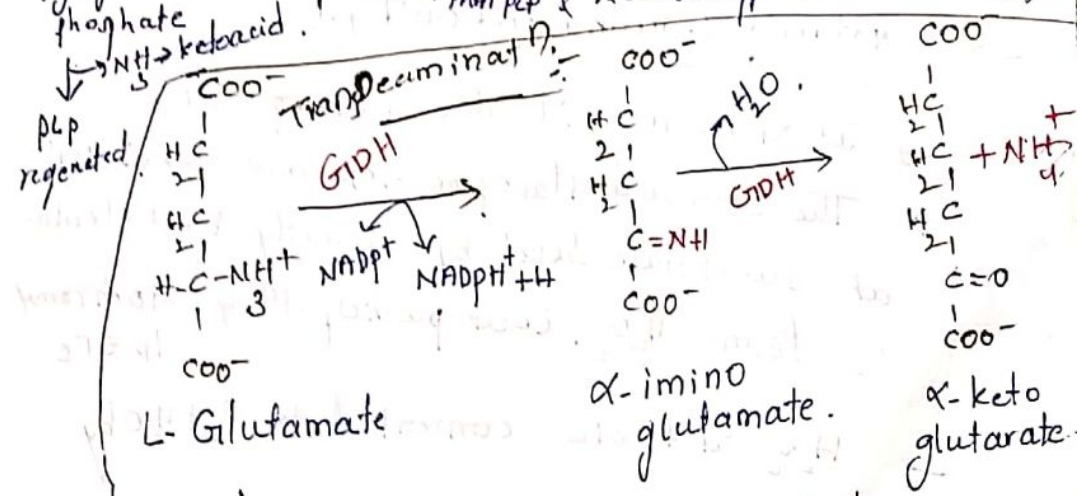 phosphate
NH3 → ketoacid.
PLP
regenerated.
TransDeaminatn:-
COO-
|
H2C
|
H2C
|
H-C-NH3+
|
COO-
L- Glutamate
GDH
NADP+
NADPH+ + H
COO-
|
H2C
|
H2C
|
C=NH
|
COO-
α-imino
glutamate.
H2O.
GDH
COO
|
H2C
|
H2C + NH4+
|
H2C
|
C=O
|
COO-
α-keto
glutarate.